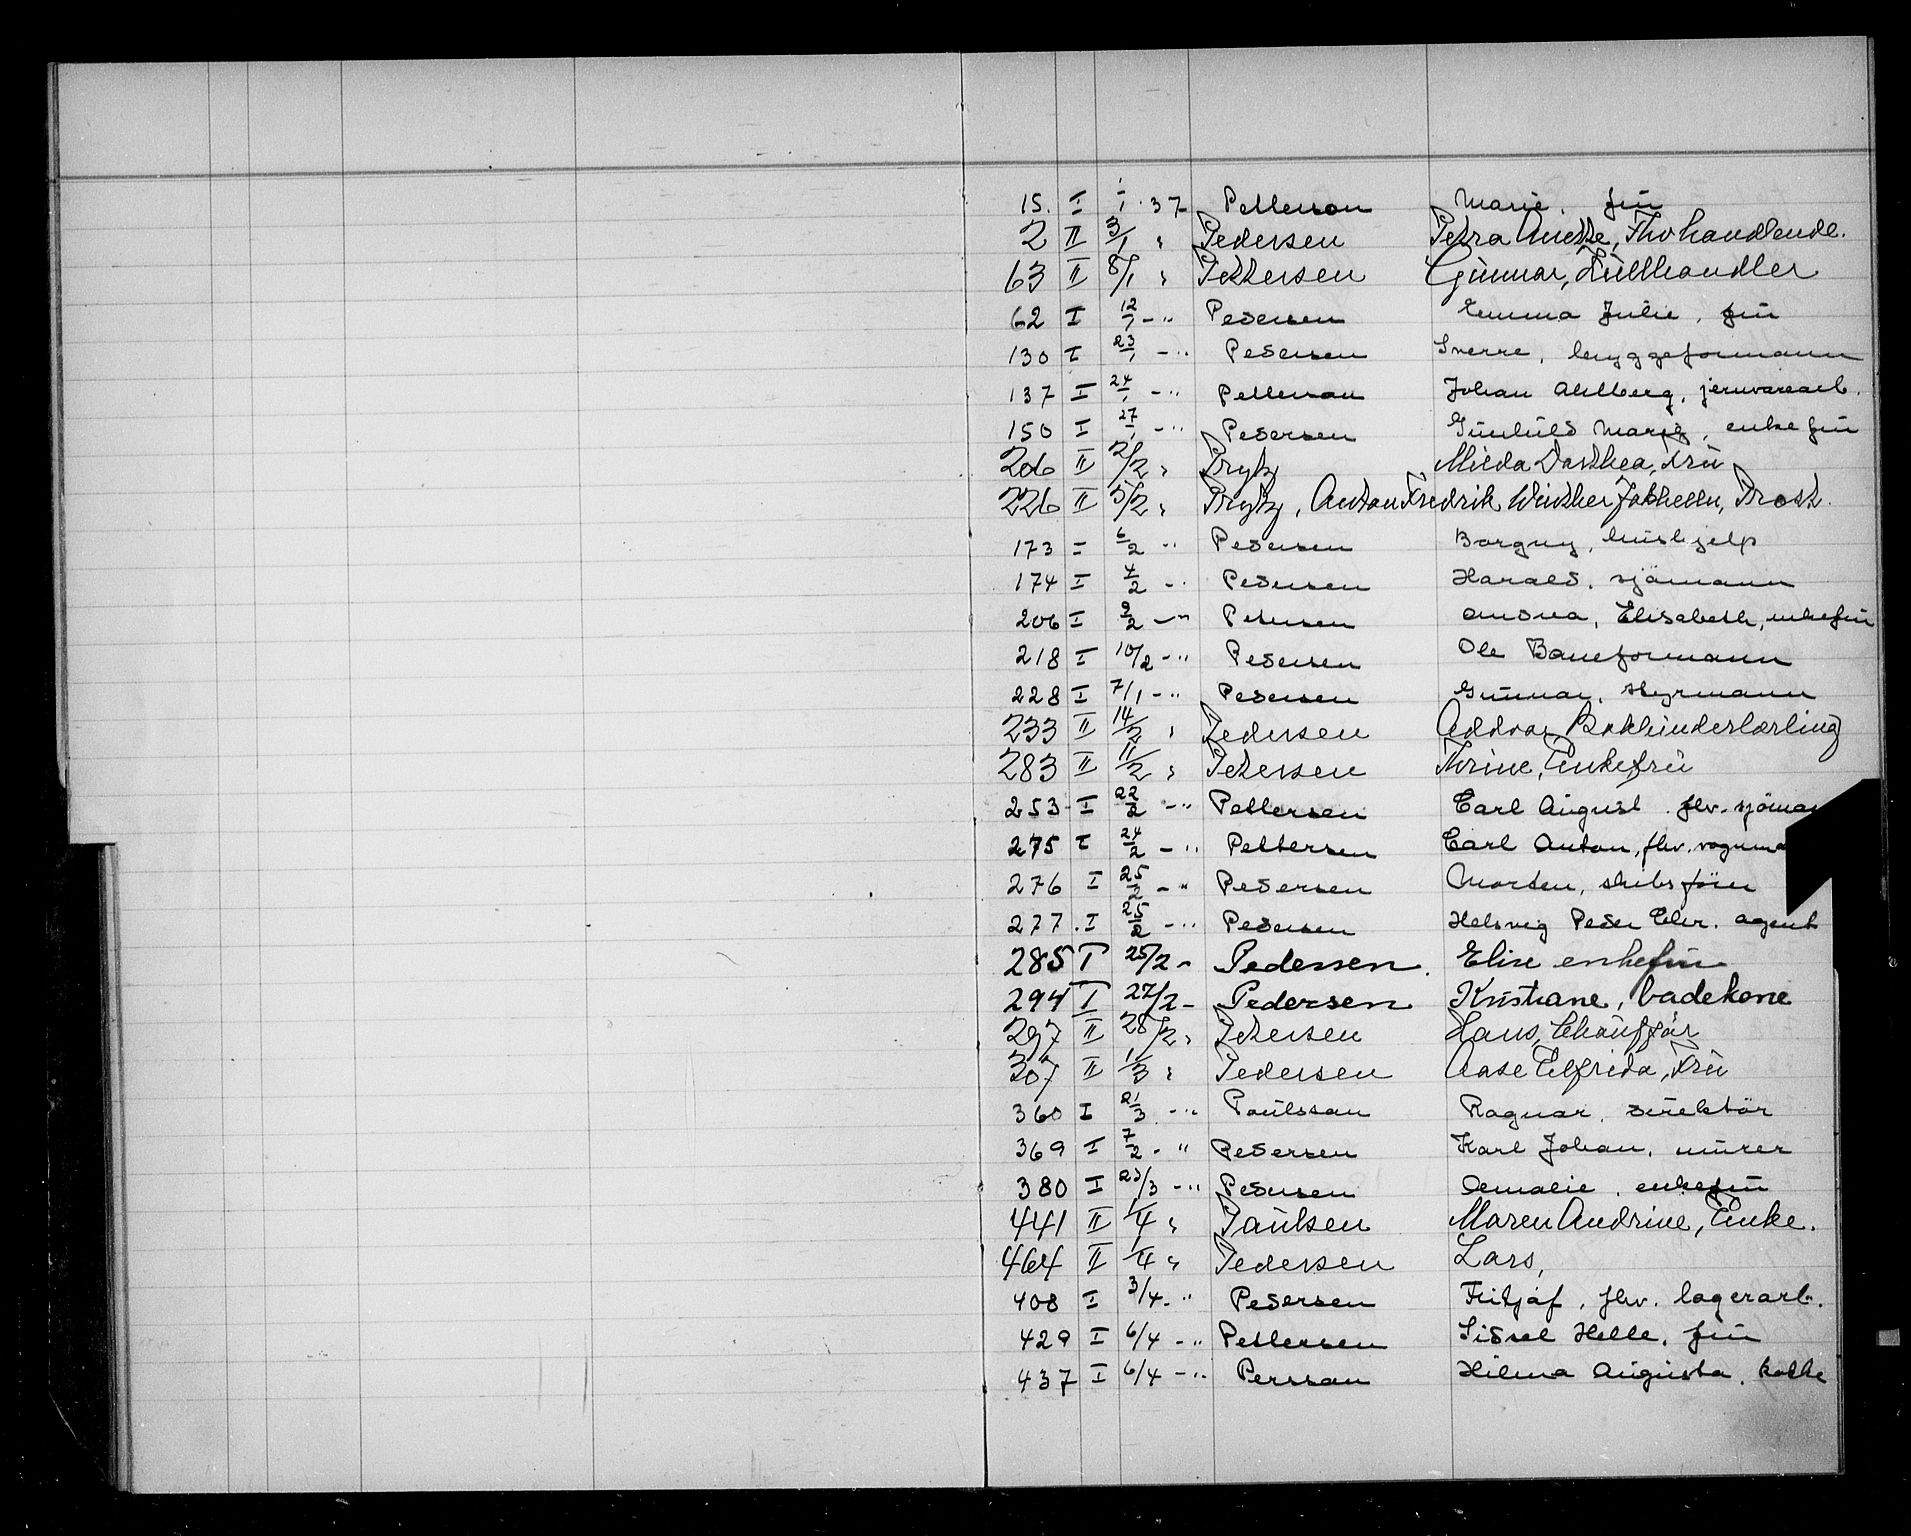 15. I 1/1 37 Petterson Marie, frü
2 II 3/1 " Pedersen Petra Anette, Fhv handlende.
63 II 8/1 " Pettersen Günnar, Küllhandler
62 I 12/1 - " Pedersen Emma Julie, frü
130 I 23/1 - " Pedersen Sverre, bryggeformann
137 I 24/1 - " Petterson Johan Ahlberg, jernvarearb.
150 I 27/1 - " Pedersen Günhild Marie, enkefrü
206 II 2/2 " Prytz Milda Dorthea, Frü
226 II 5/2 " Prytz, Anton Fredrik Winther Jakhelln, Prost.
173 I 6/2 " Pedersen Borgny, hüshjelp
174 I 4/2 - " Pedersen Harald, sjömann
206 I 9/2 - " Petersen Andrea, Elisabeth, enkefrü
218 I 10/2 - " Pedersen Ole Baneformann
228 I 7/1 - " Pedersen Günnar, styrmann
233 II 14/2 " Pedersen Oddvar Bokbinderlærling
283 II 11/2 " Petersen Thrine, Enkefrü
253 I 22/2 - " Pettersen Carl August fhv. sjöman
275 I 24/2 - " Pettersen Carl Anton, fhv. vognma
276 I 25/2 - " Pedersen Morten, skibsförer
277. I 25/2 - " Pedersen Helsvig Peder Edv. agent
285 I 25/2 - Pedersen. Elise enkefru
294 I 27/2 - Pedersen Kristiane, badekone
297 II 28/2 " Petersen Hans, Chaüffør
307 II 1/3 " Pedersen Aase Elfrida, Frü
360 I 21/3 - " Paülsson Ragnar, direktör
369 I 7/2 - " Pedersen Karl Johan, mürer
380 I 23/3 - " Pedersen Amalie, enkefrü
441 II 1/4 " Paülsen Maren Andrine, Enke.
464 II 1/4 " Pedersen Lars,
408 I 3/4 - " Pedersen Fritjof, fhv. lagerarb.
429 I 6/4 - " Pettersen Sissel Helle, frü
437 I 6/4 - " Persson Hilma Aügusta, kokke